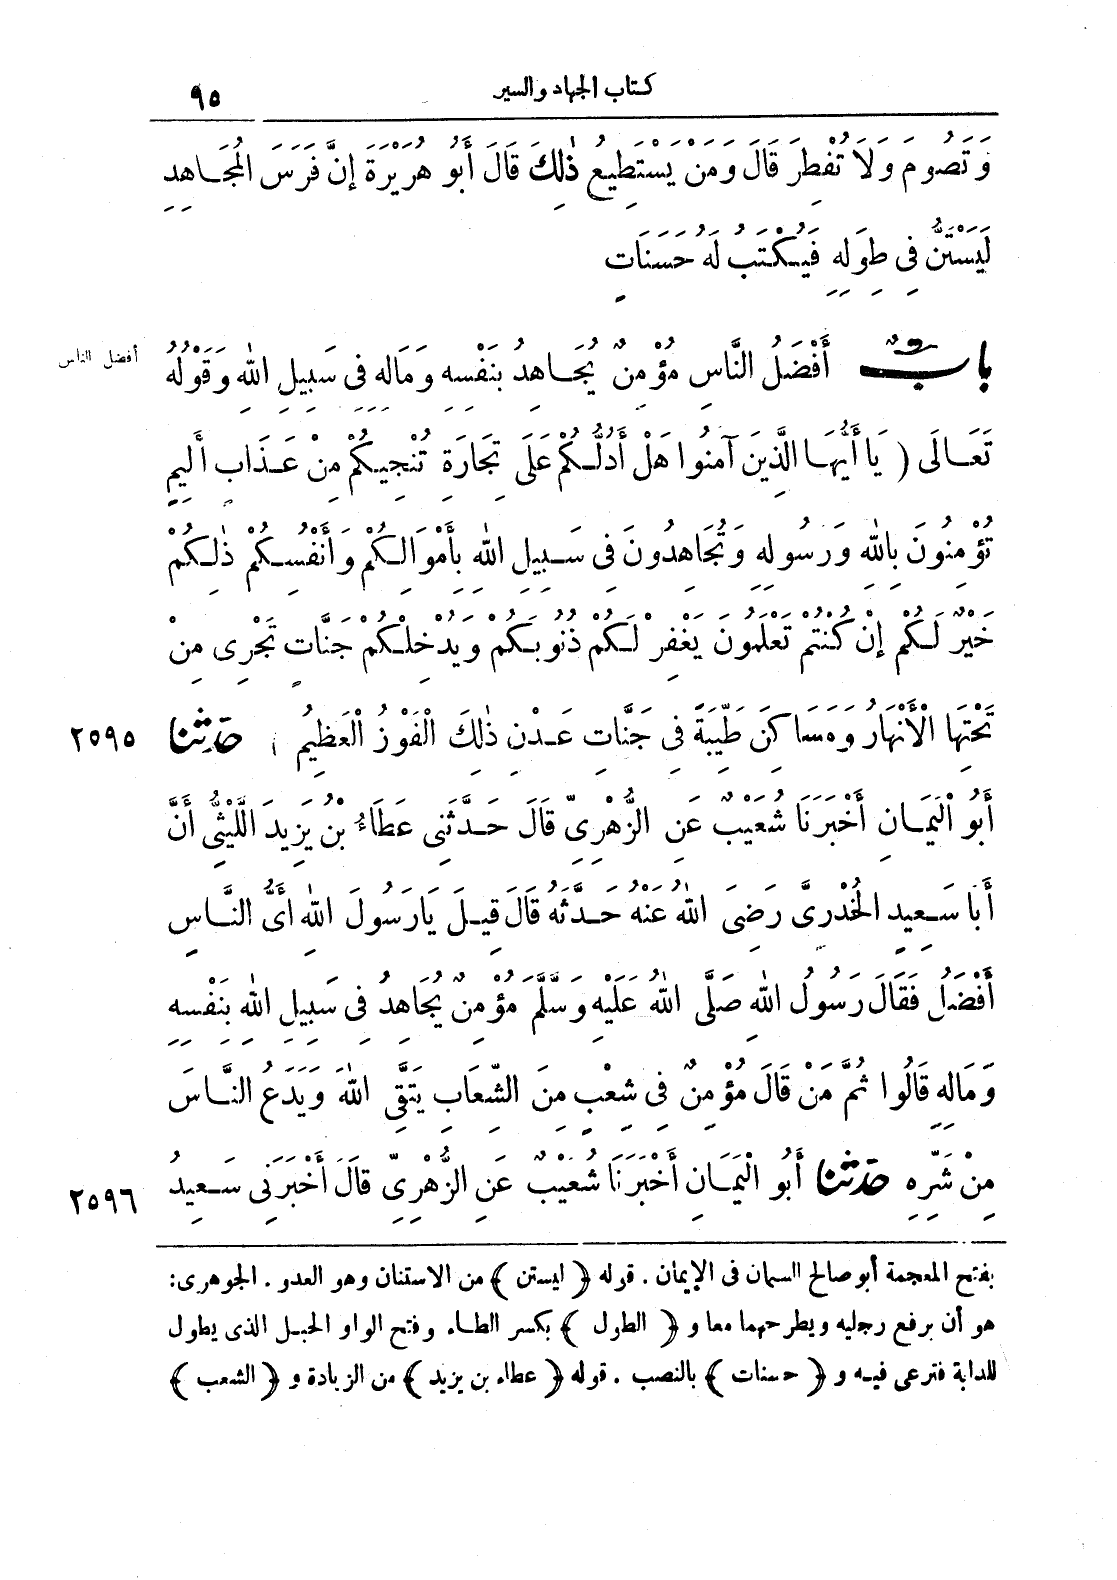 كتاب الجهاد والسير
٩٥
وَتَصُومَ وَلَا تُفْطِرَ قَالَ وَمَنْ يَسْتَطِيعُ ذٰلِكَ قَالَ أَبُو هُرَيْرَةَ إِنَّ فَرَسَ الْمُجَاهِدِ
لَيَسْتَنُّ فِى طِوَلِهِ فَيُكْتَبُ لَهُ حَسَنَاتٍ
بابٌ أَفْضَلُ النَّاسِ مُؤْمِنٌ يُجَاهِدُ بِنَفْسِهِ وَمَالِهِ فِى سَبِيلِ اللهِ وَقَوْلُهُ
أفضل الناس
تَعَالَى ( يَا أَيُّهَا الَّذِينَ آمَنُوا هَلْ أَدُلُّكُمْ عَلَى تِجَارَةٍ تُنْجِيكُمْ مِنْ عَذَابٍ أَلِيمٍ
تُؤْمِنُونَ بِاللهِ وَرَسُولِهِ وَتُجَاهِدُونَ فِى سَبِيلِ اللهِ بِأَمْوَالِكُمْ وَأَنْفُسِكُمْ ذٰلِكُمْ
خَيْرٌ لَكُمْ إِنْ كُنْتُمْ تَعْلَمُونَ يَغْفِرْ لَكُمْ ذُنُوبَكُمْ وَيُدْخِلْكُمْ جَنَّاتٍ تَجْرِى مِنْ
تَحْتِهَا الْأَنْهَارُ وَمَسَاكِنَ طَيِّبَةً فِى جَنَّاتِ عَدْنٍ ذٰلِكَ الْفَوْزُ الْعَظِيمُ ) حَدَّثَنَا
٢٥٩٥
أَبُو الْيَمَانِ أَخْبَرَنَا شُعَيْبٌ عَنِ الزُّهْرِىِّ قَالَ حَدَّثَنِى عَطَاءُ بْنُ يَزِيدَ اللَّيْثِىُّ أَنَّ
أَبَا سَعِيدٍ الْخُدْرِىَّ رَضِىَ اللهُ عَنْهُ حَدَّثَهُ قَالَ قِيلَ يَا رَسُولَ اللهِ أَىُّ النَّاسِ
أَفْضَلُ فَقَالَ رَسُولُ اللهِ صَلَّى اللهُ عَلَيْهِ وَسَلَّمَ مُؤْمِنٌ يُجَاهِدُ فِى سَبِيلِ اللهِ بِنَفْسِهِ
وَمَالِهِ قَالُوا ثُمَّ مَنْ قَالَ مُؤْمِنٌ فِى شِعْبٍ مِنَ الشِّعَابِ يَتَّقِى اللهَ وَيَدَعُ النَّاسَ
مِنْ شَرِّهِ حَدَّثَنَا أَبُو الْيَمَانِ أَخْبَرَنَا شُعَيْبٌ عَنِ الزُّهْرِىِّ قَالَ أَخْبَرَنِى سَعِيدُ
٢٥٩٦
بفتح المعجمة أبو صالح السمان فى الإيمان . قوله ﴿ ليستن ﴾ من الاستنان وهو العدو . الجوهرى:
هو أن يرفع رجليه ويطرحهما معا و ﴿ الطول ﴾ بكسر الطاء وفتح الواو الحبل الذى يطول
للدابة فترعى فيه و ﴿ حسنات ﴾ بالنصب . قوله ﴿ عطاء بن يزيد ﴾ من الزيادة و ﴿ الشعب ﴾